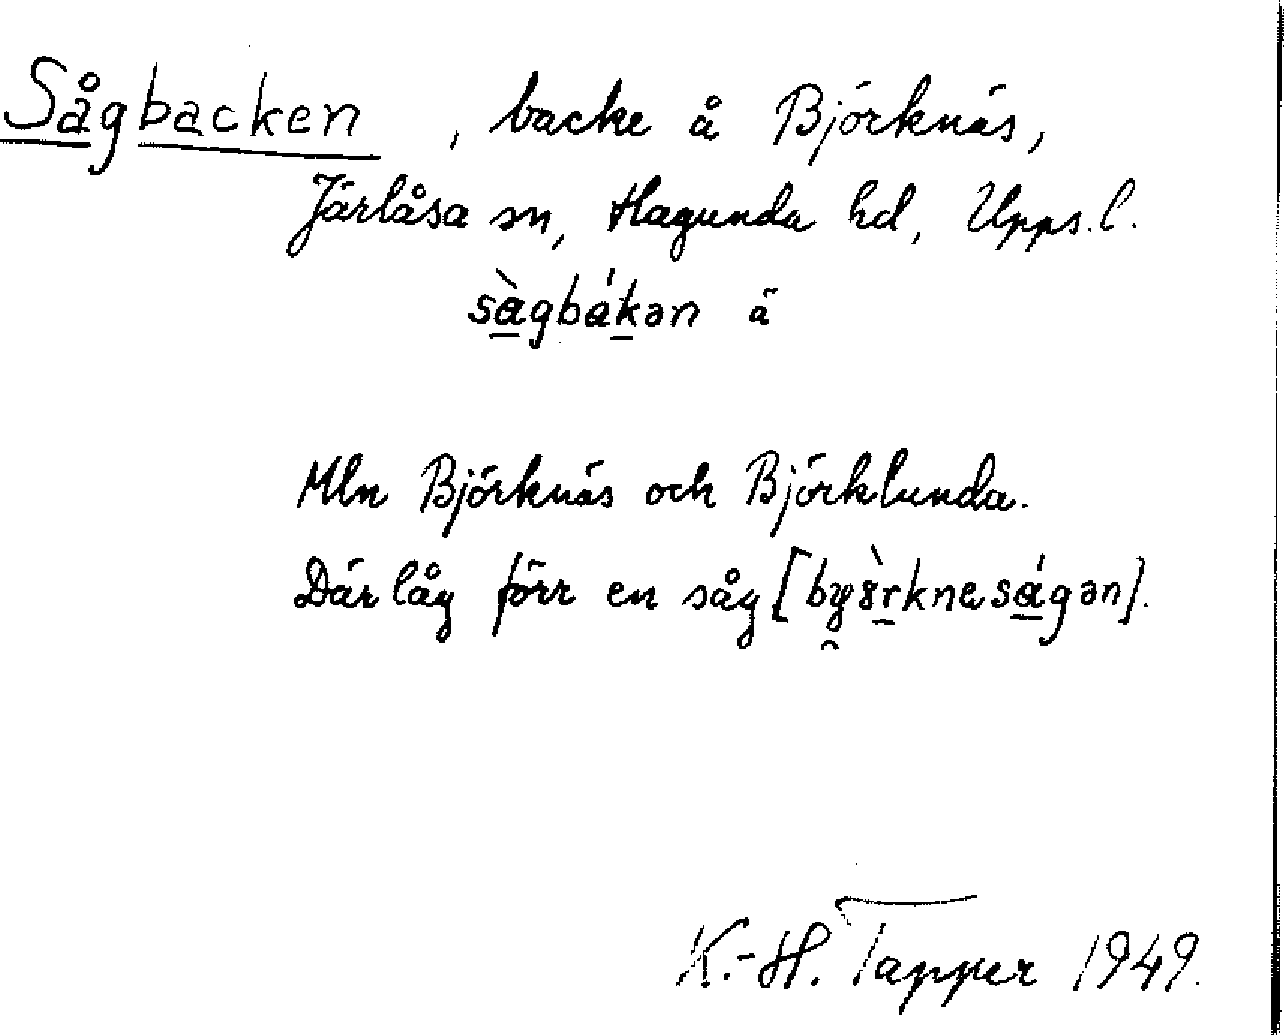 Sågbacken, backe å Björknäs,
Järlåsa sn, Hagunda hd, Upps. l.
sàgbákən ä
Mln Björknäs och Björklunda.
Där låg förr en såg [byȣ̀rkneságən].
K.-H. Tapper 1949.